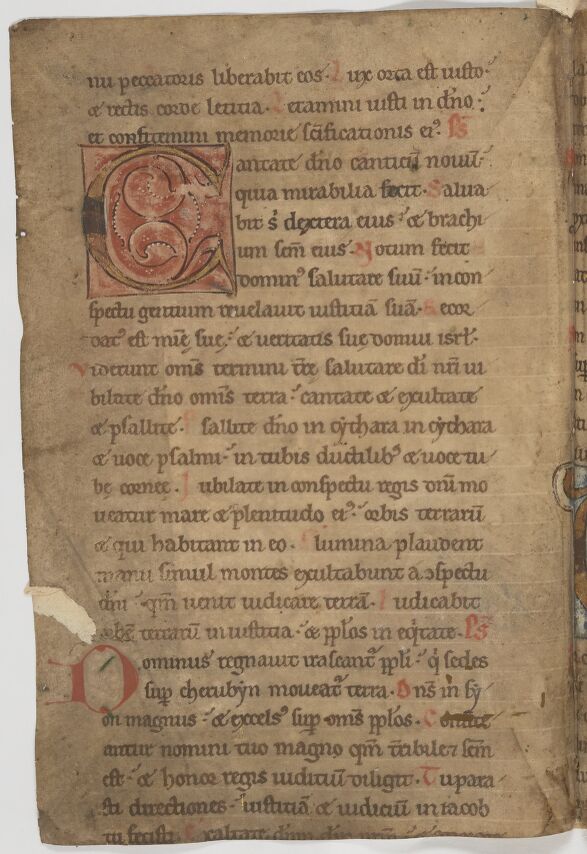 nu peccatoris liberabit eos. Lux orta est iusto.
& rectis corde letitia. Letamini iusti in dño.
et confitemini memorie sc̄ificationis ei⁹. P̄S
Cantate dño canticū nouū.
quia mirabilia fecit. Salua
bit s̄ dextera eius. & brachi
um sc̄m eius. Notum fecit
domin⁹ salutare suū. in con
spectu gentium reuelauit iustitiā suā. Recor
dat⁹ est mīe sue. & ueritatis sue domui isrł.
Viderunt om̄s termini tr̄e salutare dī nr̄i iu
bilate dño om̄is terra. cantate & exultate
& psallite. Psallite dño in cythara in cythara
& uoce psalmi. in tubis ductilib⁹ & uoce tu
be cornee. Iubilate in conspectu regis dn̄i mo
ueatur mare & plenitudo ei⁹. orbis terrarū
& qui habitant in eo. Flumina plaudent
manu simul montes exultabunt a ɔspectu
dn̄i. qm̄ uenit iudicare terrā. Iudicabit
orbē terrarū in iustitia. & pp̄los in eq̄itate. P̄S
Dominus regnauit irascant̄ pp̄li. q̄ sedes
sup̄ cherubyn moueat̄ terra. Dn̄s in sy
on magnus. & excels⁹ sup̄ om̄s pp̄los. Confite
antur nomini tuo magno qm̄ t̄ribile ⁊ sc̄m
est. & honor regis iuditiū diligit. Tu para
sti directiones. iustitiā & iudiciū in iacob
tu fecisti. Exaltate dn̄m